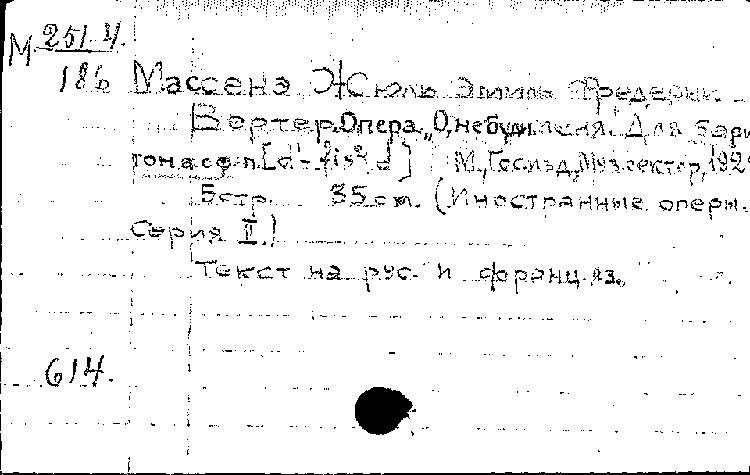 М 251.4.
186 Массена Жюль Эмиль Фредерик. –
Вертер. Опера. „О, не буди меня." Для бари
тона с ф-п. [d¹- fis² d] М., Госизд, Муз. сектор, 192
5 стр. 35 см. (Иностранные оперы.
Серия II.)
Текст на рус. и франц. яз.
614.